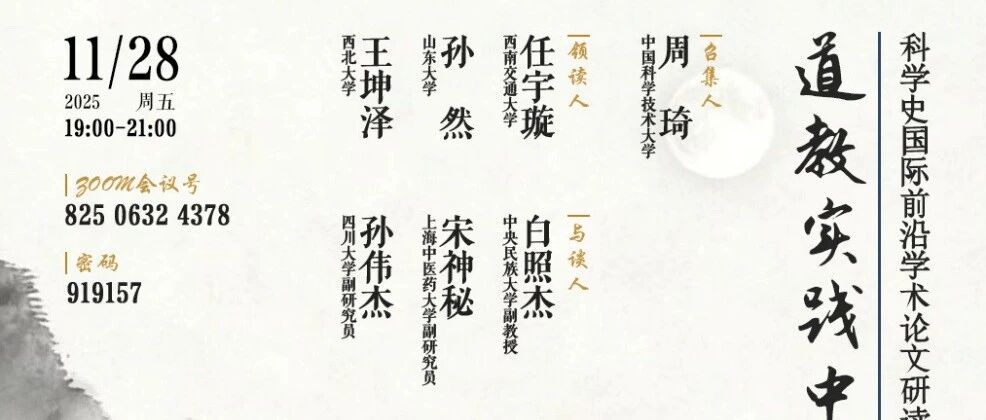 科学史国际前沿学术论文研读
道教实践中
召集人
周琦
中国科学技术大学
领读人
任宇璇
西南交通大学
孙然
山东大学
王坤泽
西北大学
与谈人
白照杰
中央民族大学副教授
宋神秘
上海中医药大学副研究员
孙伟杰
四川大学副研究员
11/28
2025 周五
19:00-21:00
ZOOM会议号
825 0632 4378
密码
919157